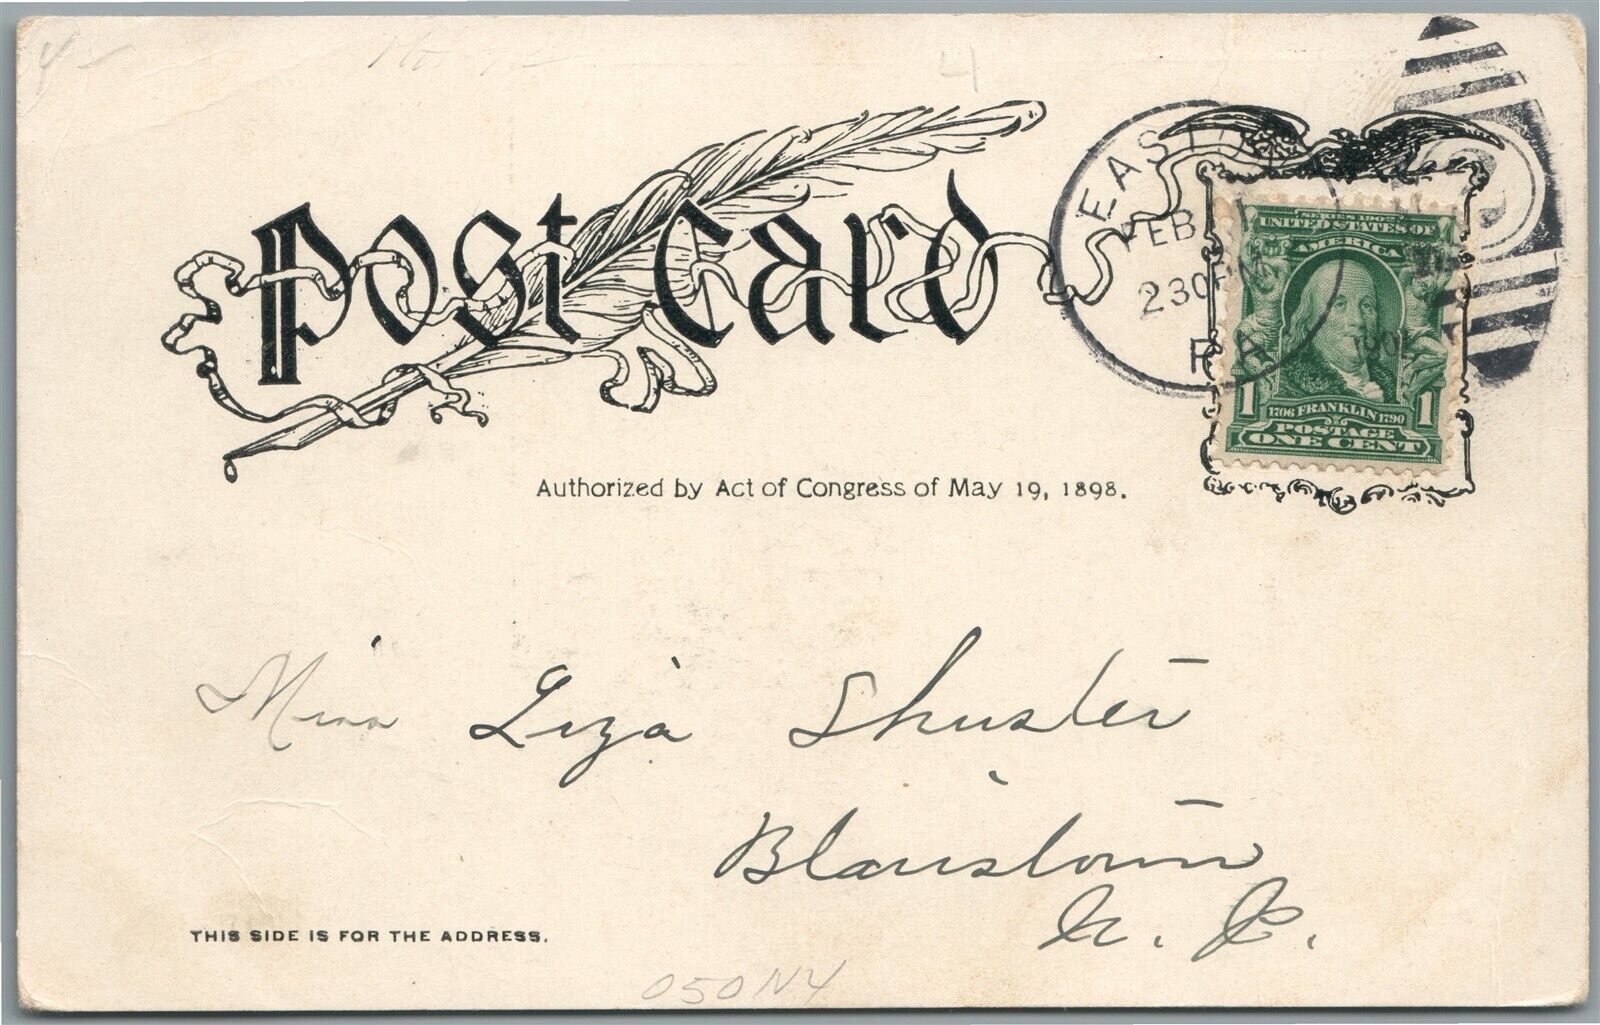 Post Card
EASTON
FEB
230P
PA
SERIES 1902
UNITED STATES OF
AMERICA
1 1
1706 FRANKLIN 1790
POSTAGE
ONE CENT
Authorized by Act of Congress of May 19, 1898.
Miss Liza Shuster
Blairstown
N. J.
THIS SIDE IS FOR THE ADDRESS.
050NY